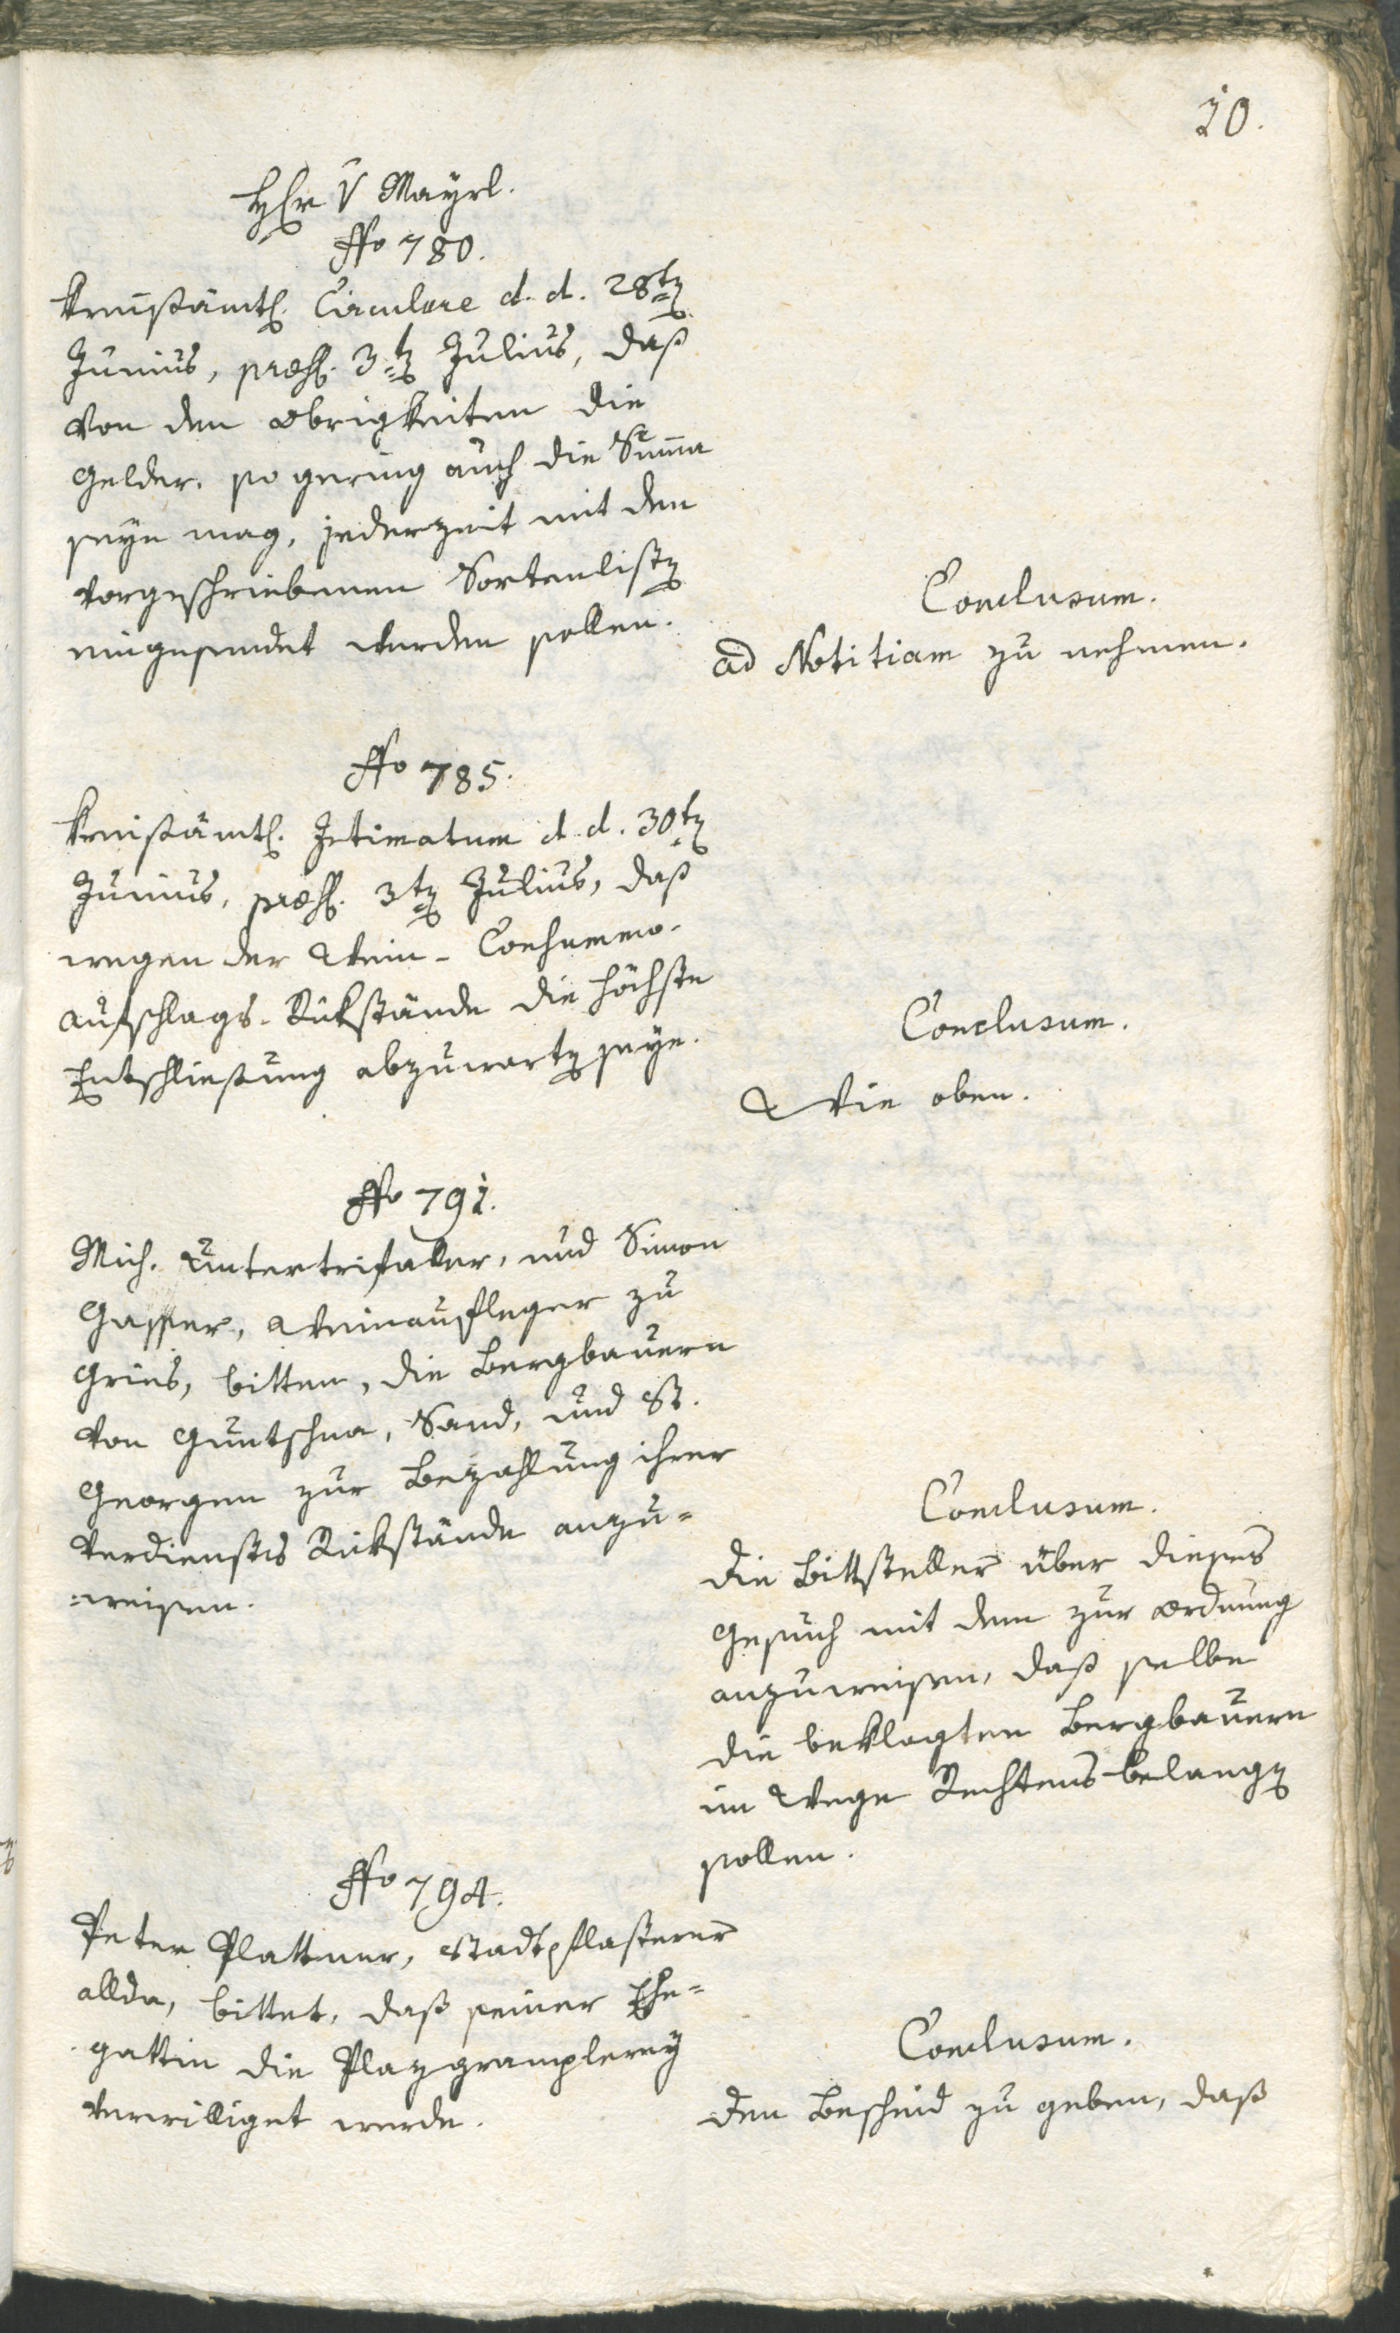 20.
Hr v Mayrl.
No 780.
Kreisämtl. Circulare d. d. 28ten
Junius, præs. 3ten Julius, daß
von den Obrigkeiten die
Gelder, so gering auch die Suma
seyn mag, jederzeit mit den
vorgeschriebenen Sortenlisten
eingesendet werden sollen.
Conclusum.
ad Notitiam zu nehmen.
No 785.
Kreisämtl. Intimatum d. d. 30ten
Junius, præs. 3ten Julius, daß
wegen der Wein-Consummo-
aufschlags-Rükstände die höchste
Entschließung abzuwarten seye.
Conclusum.
Wie oben.
No 791.
Mich. Untertrifaller, und Simon
Gasser, Weinaufleger zu
Gries, bitten, die Bergbauern
von Guntschna, Sand, und St.
Georgen zur Bezahlung ihrer
Verdienstes Rükstände anzu=
=weisen.
Conclusum.
Die Bittsteller über dieses
Gesuch mit dem zur Ordnung
anzuweisen, daß selbe
die beklagten Bergbauern
im Wege Rechtens belangen
sollen.
No 794.
Peter Plattner, Stadtpflasterer
allda, bittet, daß seiner Ehe=
gattin die Plazgramplerey
verwilliget werde.
Conclusum.
Den Bescheid zu geben, daß